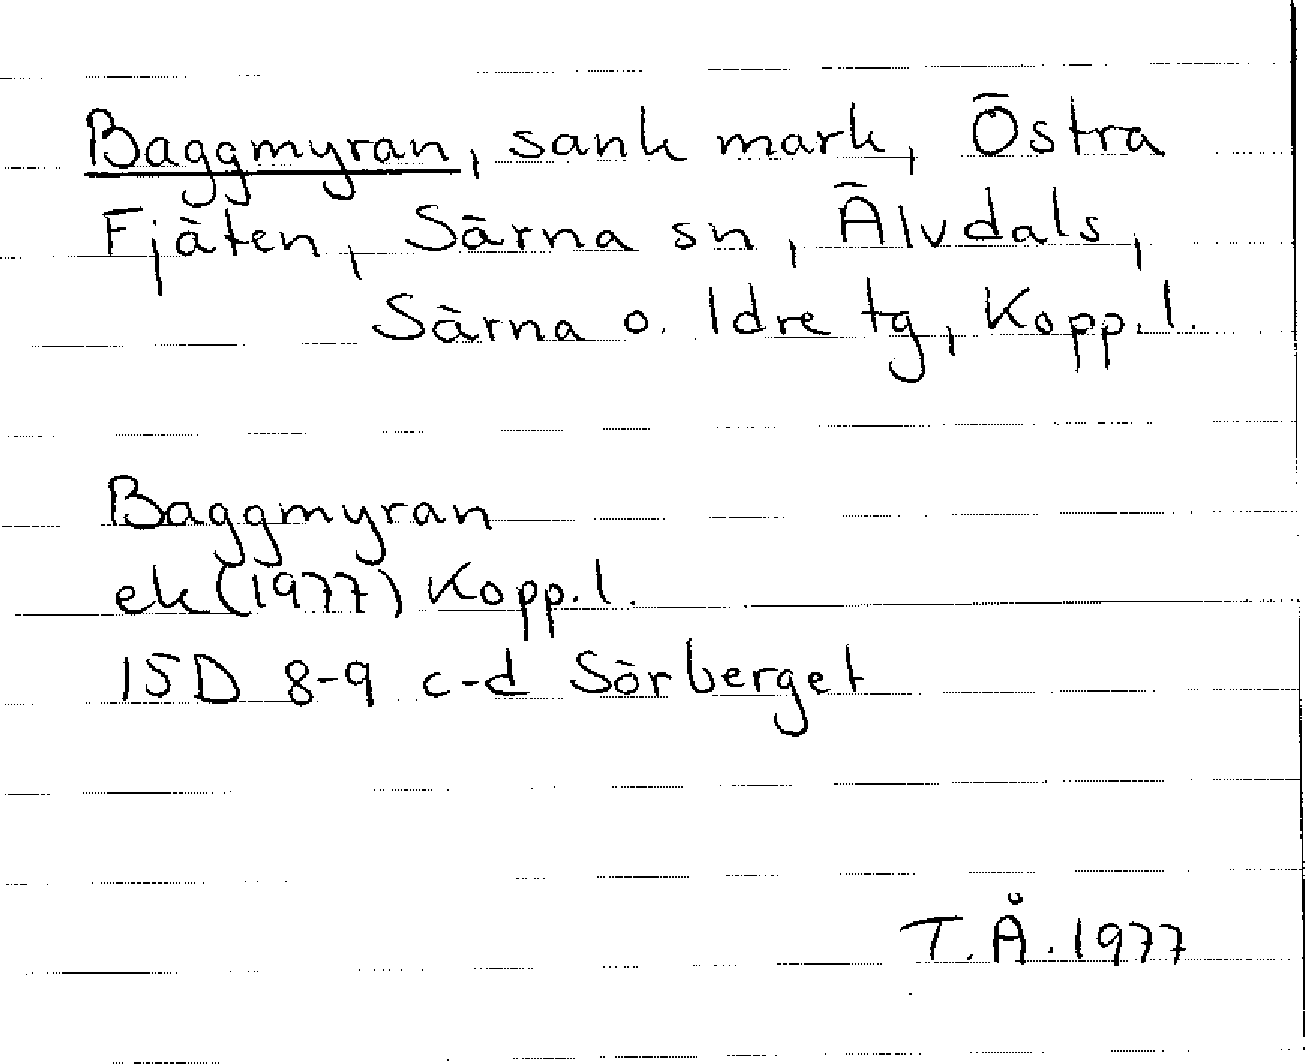 Baggmyran, sank mark, Östra
Fjäten, Särna sn, Älvdals,
Särna o. Idre tg, Kopp.l.
Baggmyran
ek (1977) Kopp.l.
15D 8-9 c-d Sörberget
T.Å. 1977